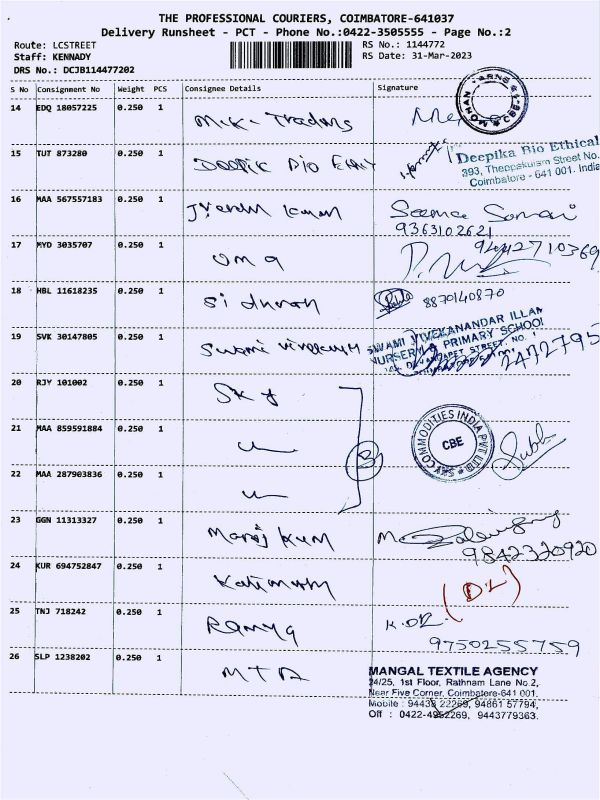 THE PROFESSIONAL COURIERS, COIMBATORE-641037
Delivery Runsheet - PCT - Phone No.:0422-3505555 - Page No.:2
Route: LCSTREET
RS No.: 1144772
Staff: KENNADY
RS Date: 31-Mar-2023
DRS No.: DCJB114477202
S No Consignment No Weight PCS Consignee Details Signature
14 EDQ 18057225 0.250 1 M.K. Traders
MOHAN CBE-1
15 TUT 873280 0.250 1 Deepik Bio
Deepika Bio Ethical
393, Theppakulam Street No.
Coimbatore - 641 001. India
16 MAA 567557183 0.250 1 Seema Somani
9363102621
17 MYD 3035707 0.250 1 Uma 9442710369
18 HBL 11618235 0.250 1 8870140870
19 SVK 30147805 0.250 1 Swami
SWAMI VIVEKANANDAR ILLAM
NURSERY & PRIMARY SCHOOL
2472795
20 RJY 101002 0.250 1
21 MAA 859591884 0.250 1 SKY COMMODITIES INDIA PVT LTD CBE
3
22 MAA 287903836 0.250 1
23 GGN 11313327 0.250 1 Manoj Kum
9842320920
24 KUR 694752847 0.250 1 (DL)
25 TNJ 718242 0.250 1 Ramya
9750255759
26 SLP 1238202 0.250 1 MTA
MANGAL TEXTILE AGENCY
24/25, 1st Floor, Rathnam Lane No.2,
Near Five Corner, Coimbatore-641 001.
Mobile : 94438 22269, 94861 57794,
Off : 0422-4952269, 9443779363.